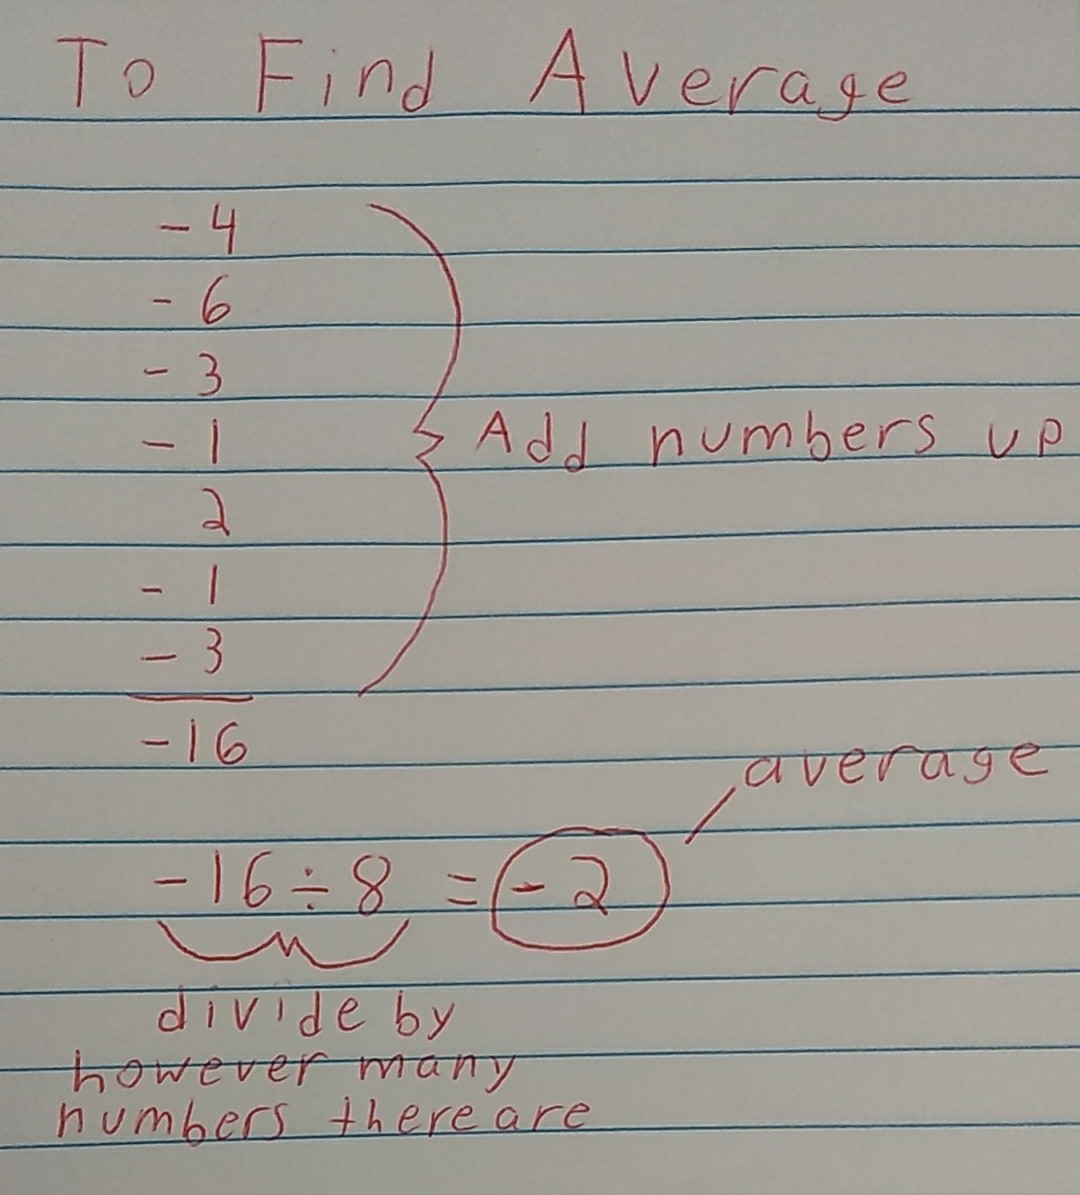 To Find Average
- 4
- 6
- 3
- 1
Add numbers up
2
- 1
- 3
-16
average
-16 ÷ 8 = -2
divide by
however many
numbers there are